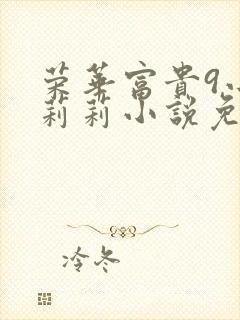 荣華富貴9
莉莉小說免
冷冬